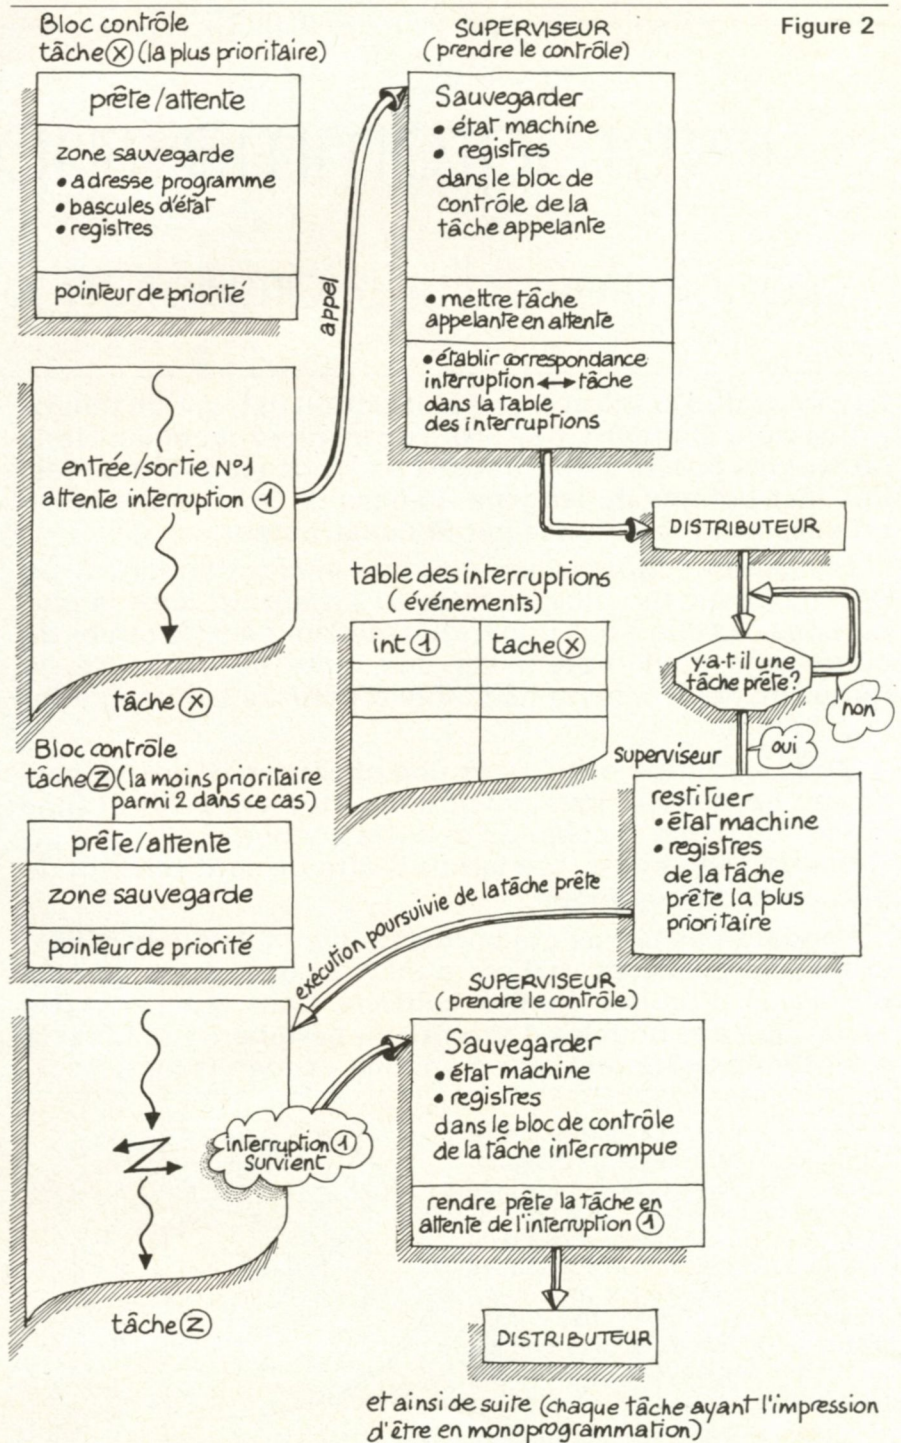 Figure 2
Bloc contrôle
tâche Ⓧ (la plus prioritaire)
prête/attente
zone sauvegarde
• adresse programme
• bascules d'état
• registres
pointeur de priorité
entrée/sortie N°1
attente interruption ①
tâche Ⓧ
appel
SUPERVISEUR
(prendre le contrôle)
Sauvegarder
• état machine
• registres
dans le bloc de
contrôle de la
tâche appelante
• mettre tâche
appelante en attente
• établir correspondance
interruption ↔ tâche
dans la table
des interruptions
DISTRIBUTEUR
y-a-t-il une
tâche prête?
non
oui
table des interruptions
(événements)
int ① tache Ⓧ
Superviseur
restituer
• état machine
• registres
de la tâche
prête la plus
prioritaire
exécution poursuivie de la tâche prête
Bloc contrôle
tâche Ⓩ (la moins prioritaire
parmi 2 dans ce cas)
prête/attente
zone sauvegarde
pointeur de priorité
interruption ①
survient
tâche Ⓩ
SUPERVISEUR
(prendre le contrôle)
Sauvegarder
• état machine
• registres
dans le bloc de contrôle
de la tâche interrompue
rendre prête la tâche en
attente de l'interruption ①
DISTRIBUTEUR
et ainsi de suite (chaque tâche ayant l'impression
d'être en monoprogrammation)